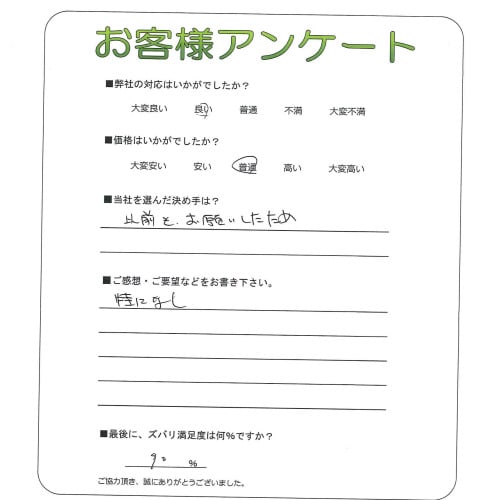 お客様アンケート
■弊社の対応はいかがでしたか？
大変良い 良い 普通 不満 大変不満
■価格はいかがでしたか？
大変安い 安い 普通 高い 大変高い
■当社を選んだ決め手は？
以前も、お願いしたため
■ご感想・ご要望などをお書き下さい。
特になし
■最後に、ズバリ満足度は何％ですか？
90 ％
ご協力頂き、誠にありがとうございました。